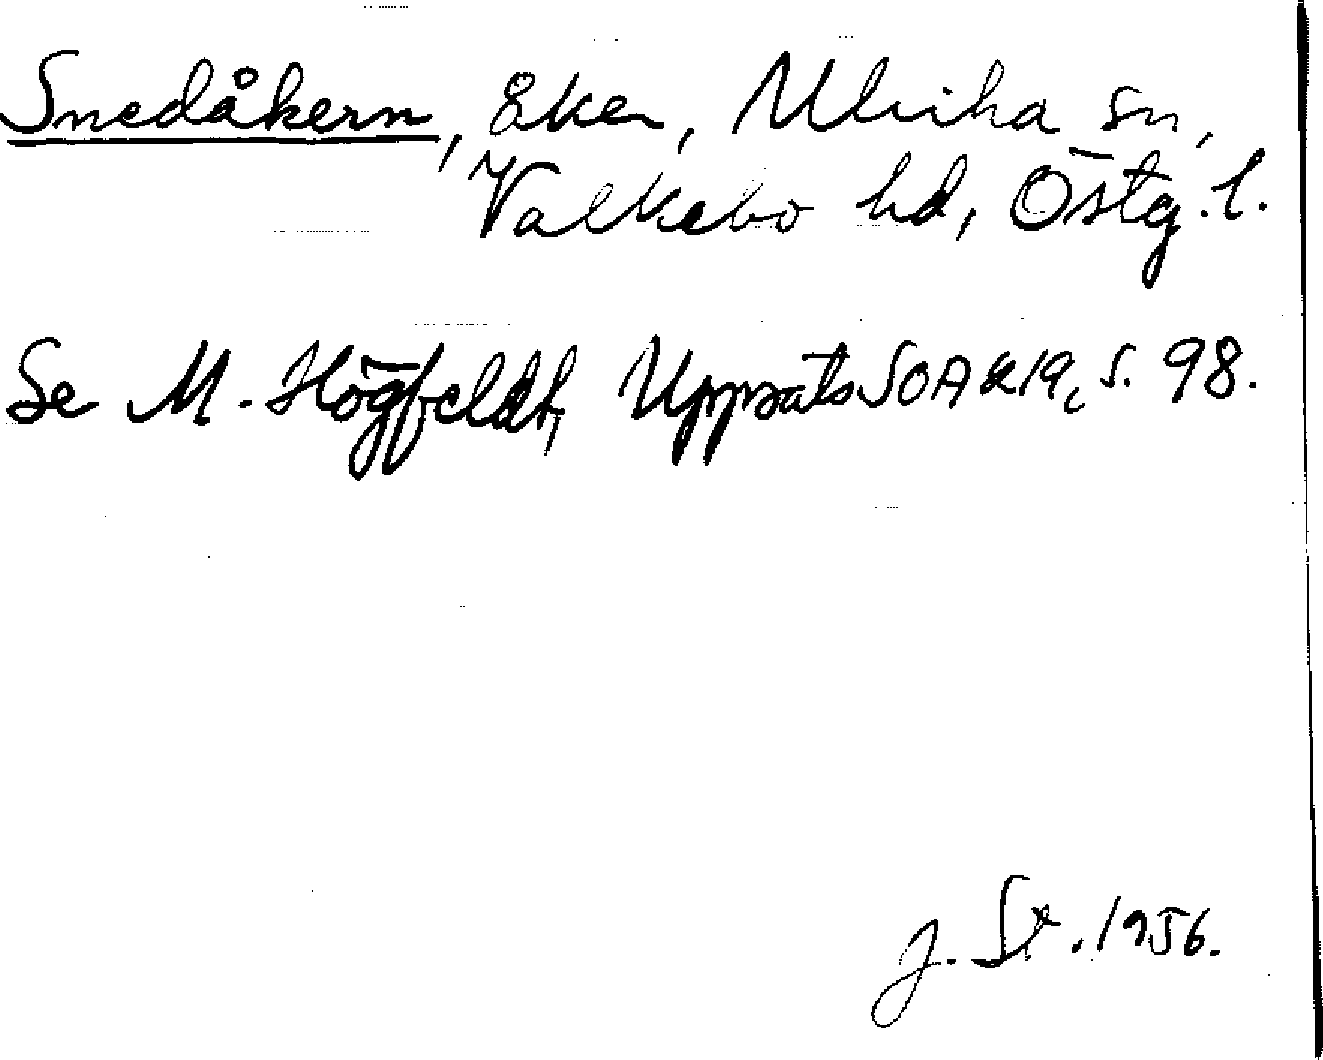 Snedåkern, åker, Ulrika sn,
Valkebo hd, Östg. l.
Se M. Högfeldt, Uppsats SOAk 19, s. 98.
J. St. 1956.